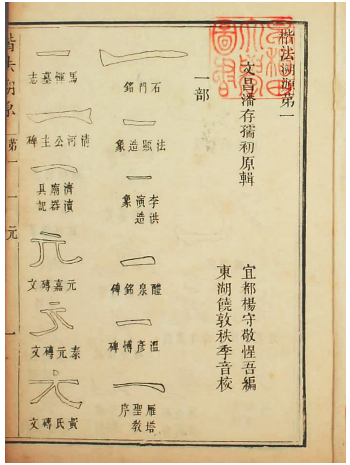 楷法溯源第一
文昌潘存孺初原輯
宜都楊守敬惺吾編
東湖饒敦秩季音校
一部
一
石門銘
一
造象
一
李洪演造象
一
醴泉銘碑
一
溫彥博碑
一
雁塔聖教序
一
馬 墓志
一
清河公主碑
一
濟瀆廟器具記
元
元嘉磚文
元
泰元磚文
元
黃氏磚文
第一 一 元